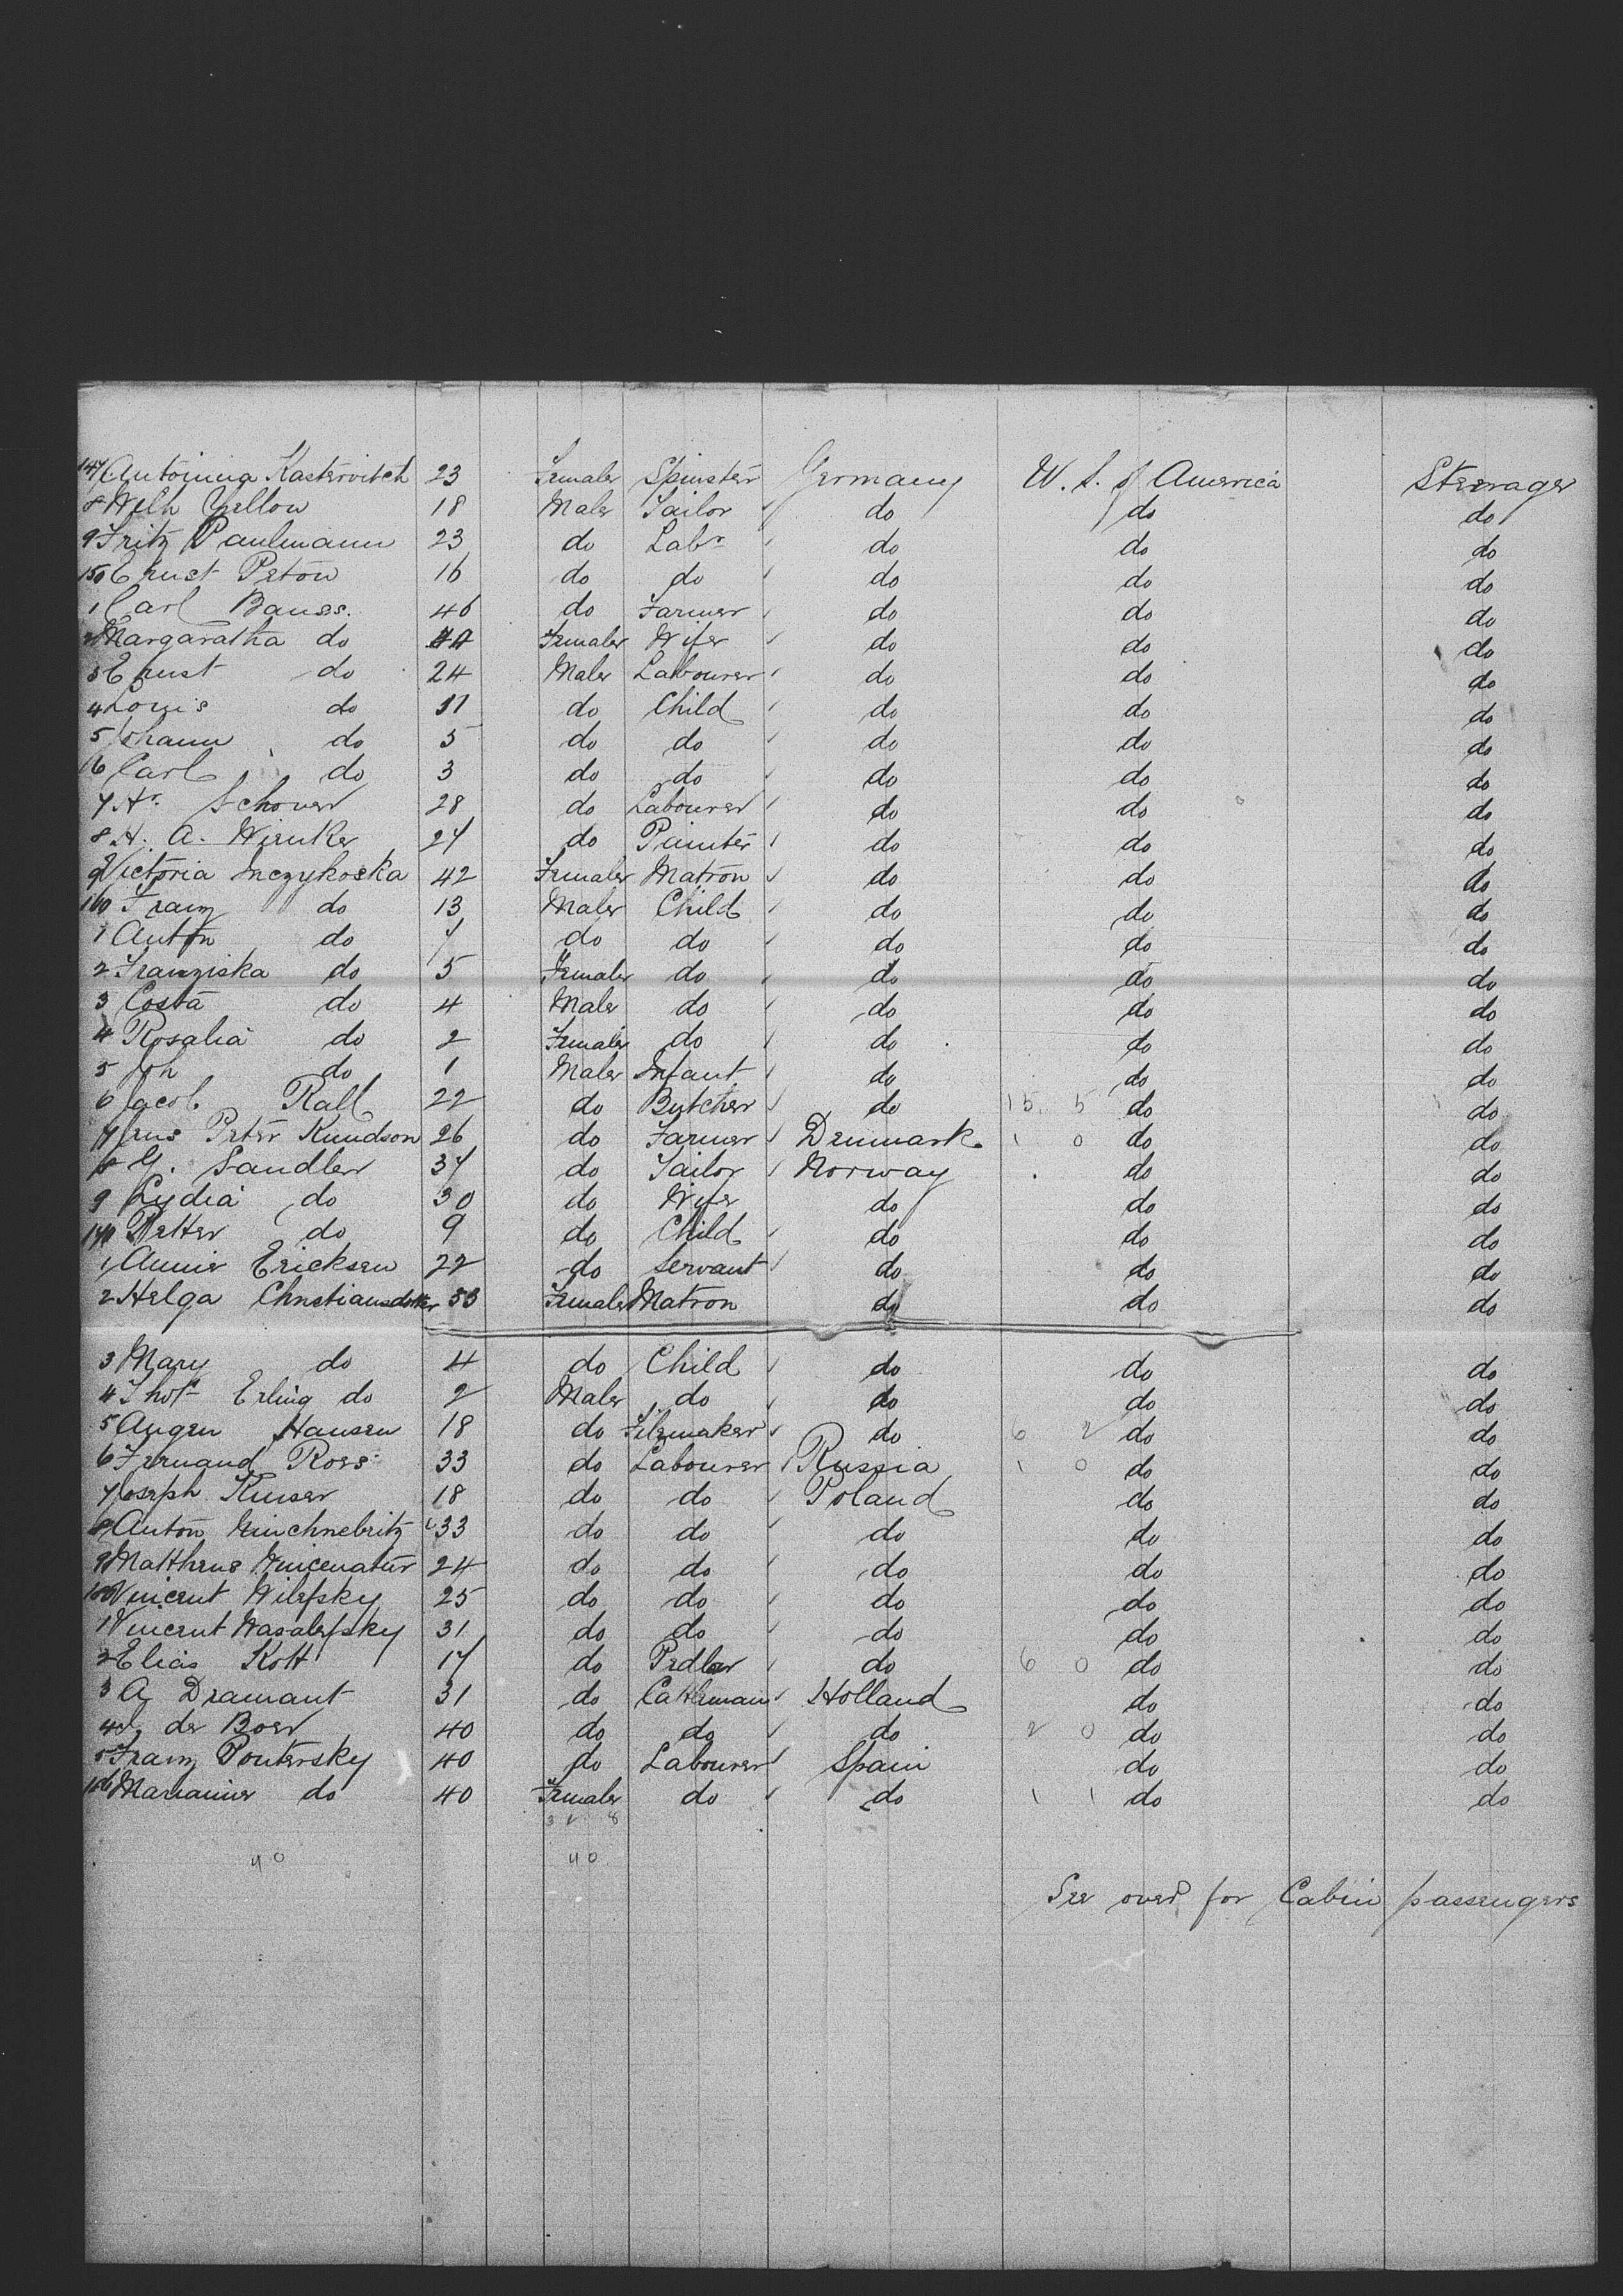 147 Antonina Kastervitch 23 Female Spinster Germany U. S. of America Steerage
8 Welh Yellow 18 Male Tailor do do do
9 Fritz Paulmann 23 do Labr do do do
150 Ernst Peton 16 do do do do do
1 Carl Banss. 46 do Farmer do do do
2 Margaratha do 44 Female Wife do do do
3 Ernst do 24 Male Labourer do do do
4 Louis do 11 do Child do do do
5 Johann do 5 do do do do do
6 Carl do 3 do do do do do
7 Schoner 28 do Labourer do do do
8 H. A. Winke 27 do Painter do do do
9 Victoria Inczykoska 42 Female Matron do do do
160 Franz do 13 Male Child do do do
1 Anton do 7 do do do do do
2 Franziska do 5 Female do do do do
3 Costa do 4 Male do do do do
4 Rosalia do 2 Female do do do do
5 Joh do 1 Male Infant do do do
6 Jacob Rall 22 do Butcher do 15 5 do do
7 Jens Peter Knudson 26 do Farmer Denmark 1 0 do do
8 Y. Sandler 37 do Tailor Norway do do
9 Lydia do 30 do Wife do do do
170 Petter do 9 do Child do do do
1 Annie Ericksen 22 do Servant do do do
2 Helga Christiansdotter 53 Female Matron do do do
3 Mary do 4 do Child do do do
4 Thof Erling do 2 Male do do do do
5 Augen Hansen 18 do Filemaker do 6 2 do do
6 Fernand Ross 33 do Labourer Russia 1 0 do do
7 Joseph Kuiser 18 do do Poland do do
8 Anton 33 do do do do do
9 Mattheus 24 do do do do do
180 Vincent Wilefsky 25 do do do do do
1 Vincent Wasalefsky 31 do do do do do
2 Elias Kott 17 do Pedler do 6 0 do do
3 A Dramant 31 do Cattleman Holland do do
4 J. de Boer 40 do do do 2 0 do do
5 Franz Pontersky 40 do Labourer Spain do do
186 Marianne do 40 Female do do 1 1 do do
32 8
40 40
See over for Cabin passengers